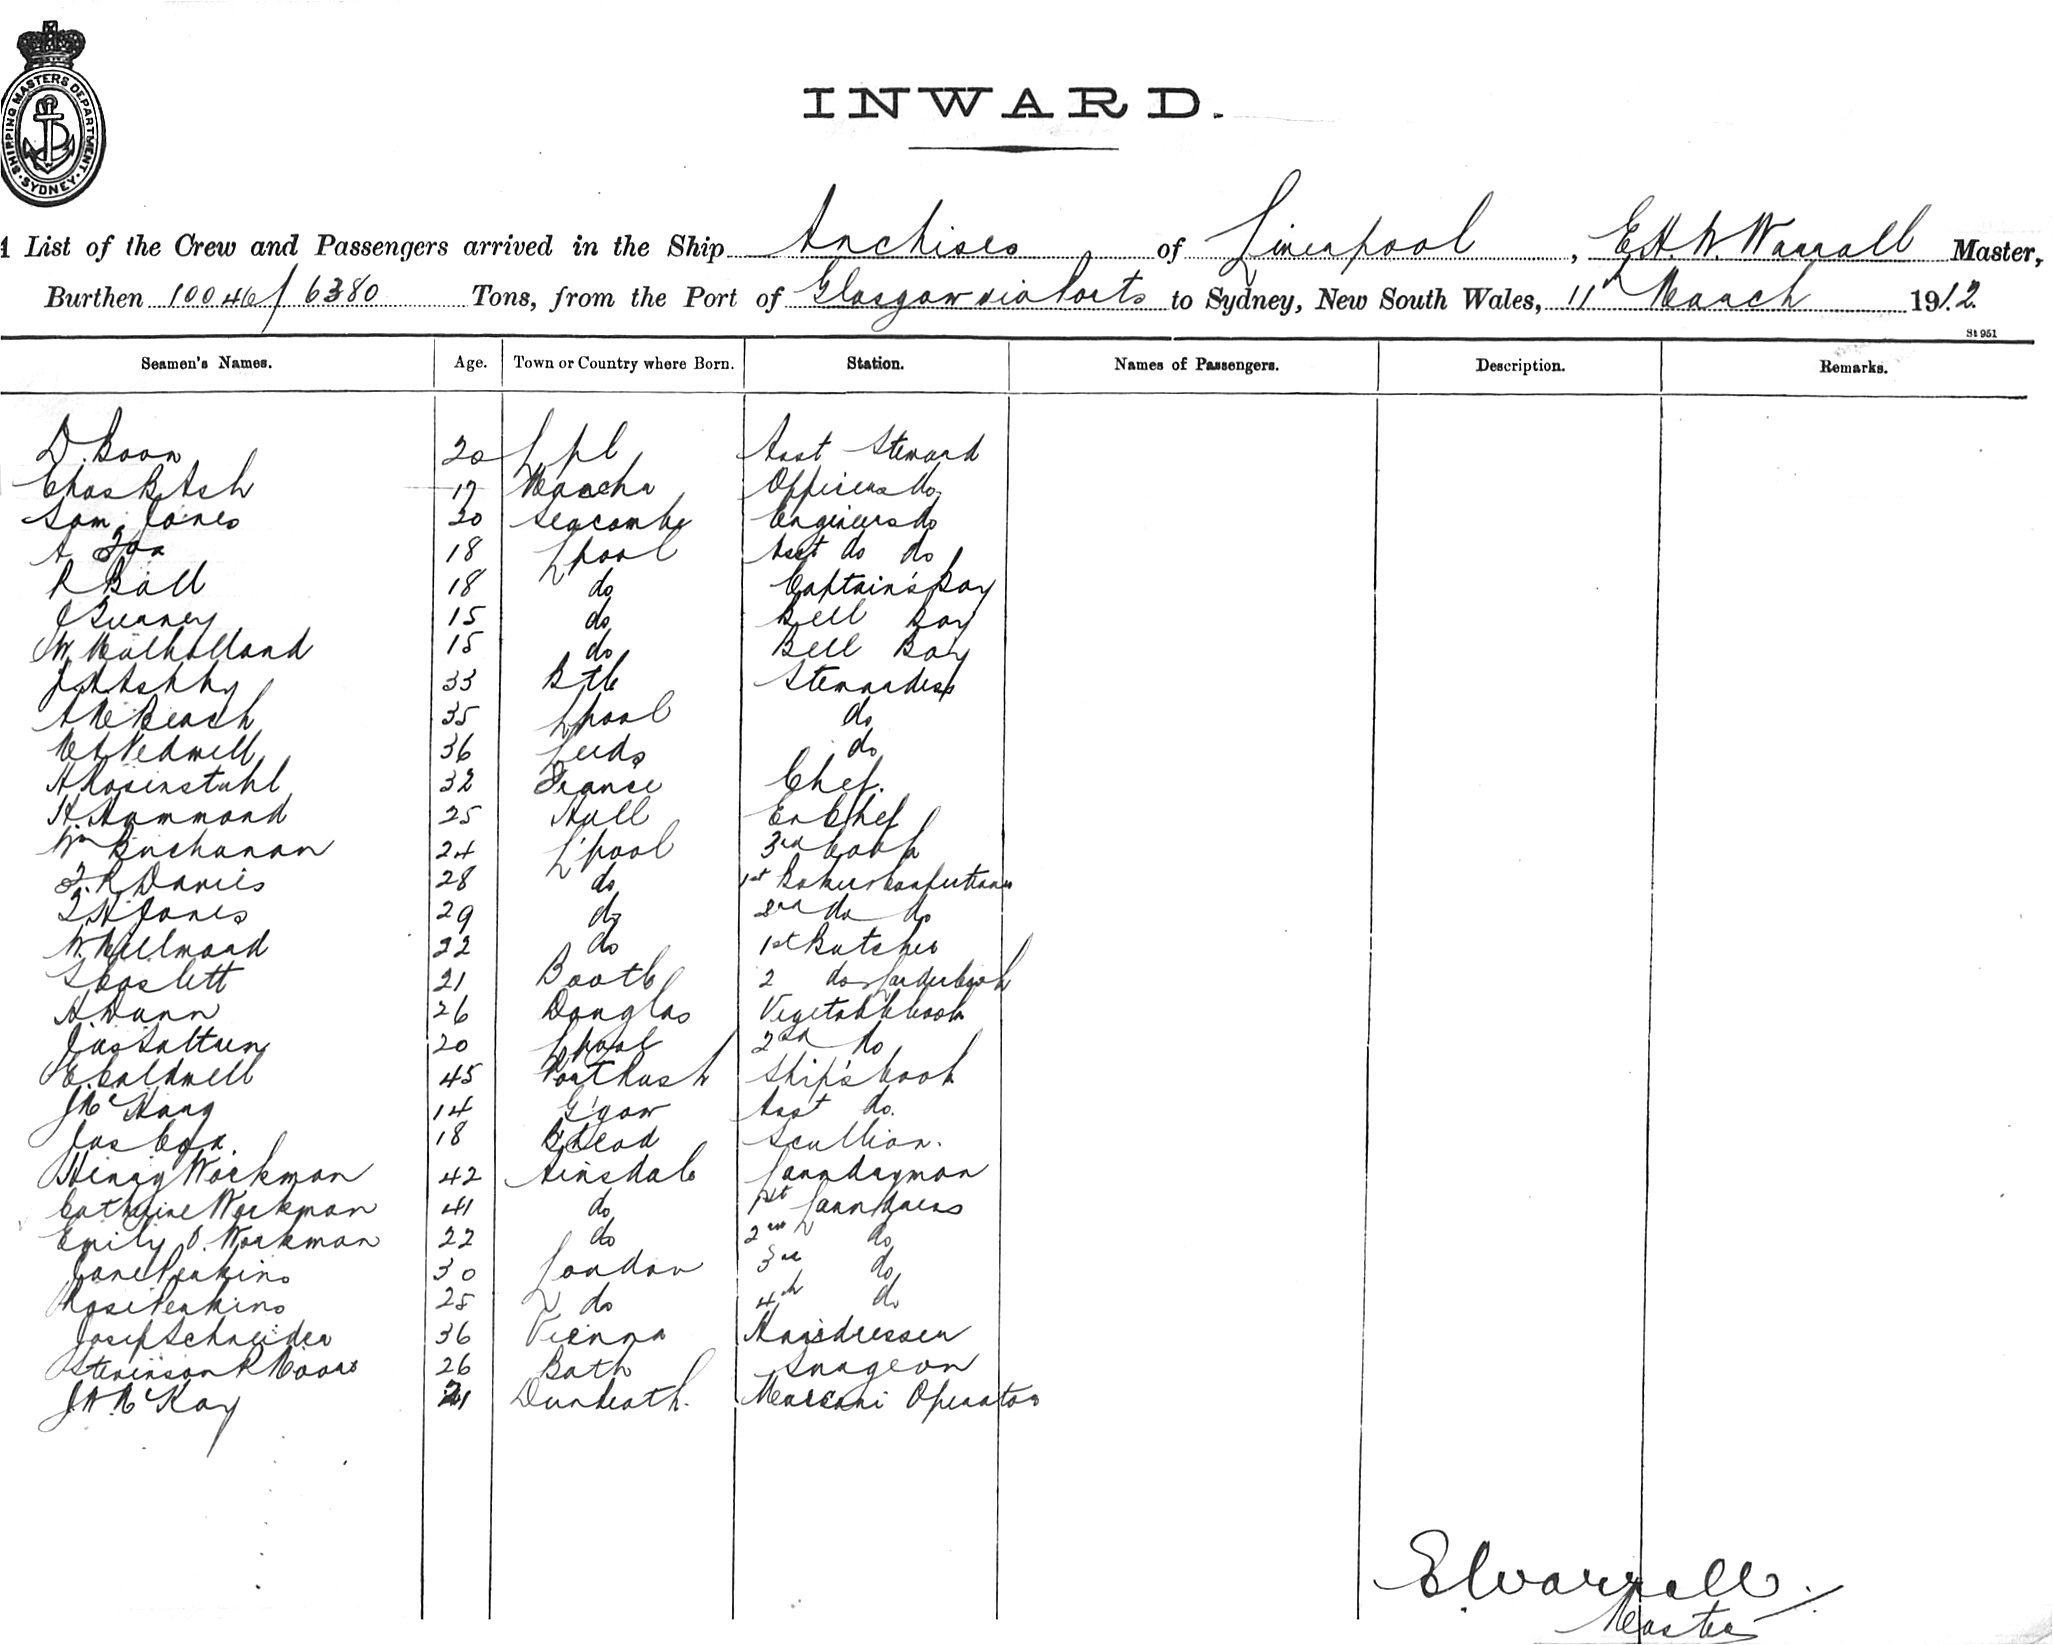 SHIPPING MASTERS DEPARTMENT. SYDNEY
INWARD.
A List of the Crew and Passengers arrived in the Ship Anchises of Liverpool, E.H.W. Warrall Master,
Burthen 10046/6380 Tons, from the Port of Glasgow via Ports to Sydney, New South Wales, 11th March 1912
St 951
Seamen's Names. Age. Town or Country where Born. Station. Names of Passengers. Description. Remarks.
D. Boon 20 Lpl Asst Steward
Chas B Ash 17 Officers do
Sam Jones 20 Seacombe Engineers do
A Fox 18 Lpool Asst do do
R Ball 18 do Captain's Boy
J 15 do Bell Boy
W. Mulholland 15 do Bell Boy
J A Ashby 33 Btle Stewardess
A M Beach 35 Lpool do
M A Vedmell 36 Leeds do
A Rosenstuhl 32 France Chef.
H. Hammond 25 Hull Chef
Wm Buchanan 24 L'pool 3rd Cook
F. R Davies 28 do 1st Baker & Confectioner
T H Jones 29 do 2nd do do
W. Millward 22 do 1st Butcher
S Coslett 21 Bootle 2 do & Larder Cook
A Dunn 26 Douglas Vegetable Cook
Jas Saltun 20 Lpool 2nd do
E. Caldwell 45 Portrush Ship's Cook
J Mc Harg 14 G'gow Asst do.
Jas Cox. 18 B'head Scullion.
Henry Workman 42 Ainsdale Laundryman
Catherine Workman 41 do 1st Laundress
Emily O. Workman 22 do 2nd do
Jane Perkins 30 London 3rd do
Rose Perkins 25 do 4th do
Josef Schneider 36 Vienna Hairdresser
Stevenson R Moore 26 Bath Surgeon
J H Mc Kay 21 Dunbeath. Marconi Operator
E Warrall.
Master